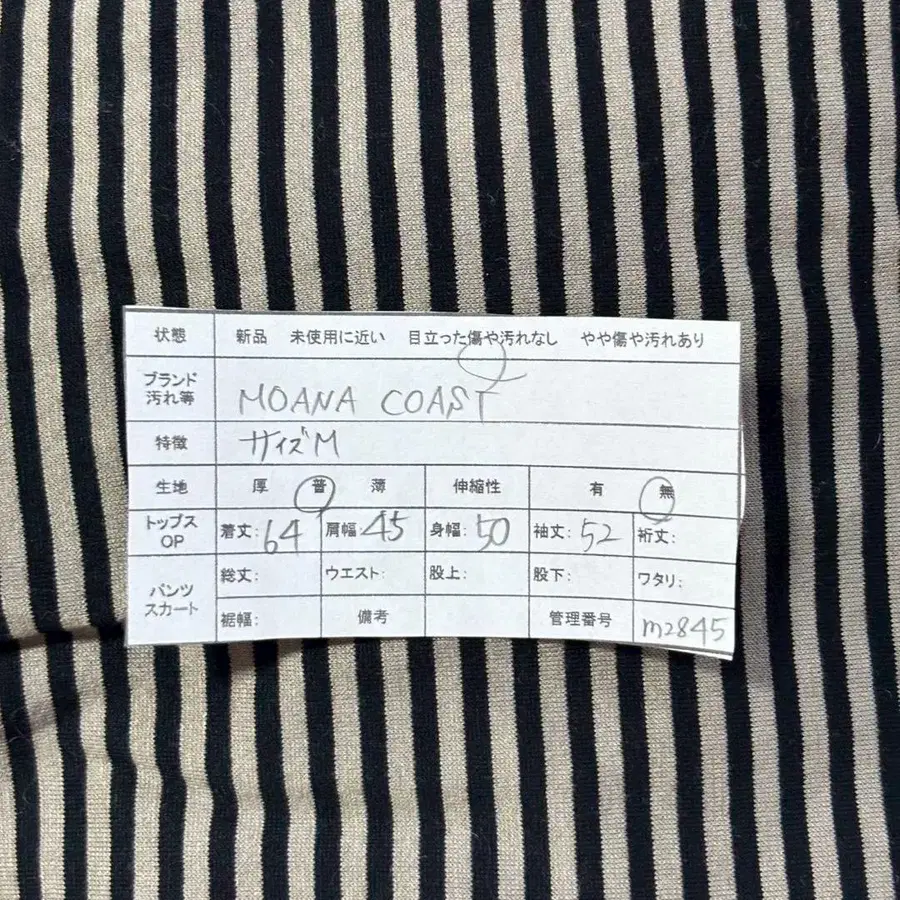 状態 新品 未使用に近い 目立った傷や汚れなし やや傷や汚れあり
ブランド
汚れ等 MOANA COAST
特徴 サイズM
生地 厚 普 薄 伸縮性 有 無
トップス
OP 着丈:64 肩幅:45 身幅:50 袖丈:52 裄丈:
パンツ
スカート 総丈: ウエスト: 股上: 股下: ワタリ:
裾幅: 備考 管理番号 m2845